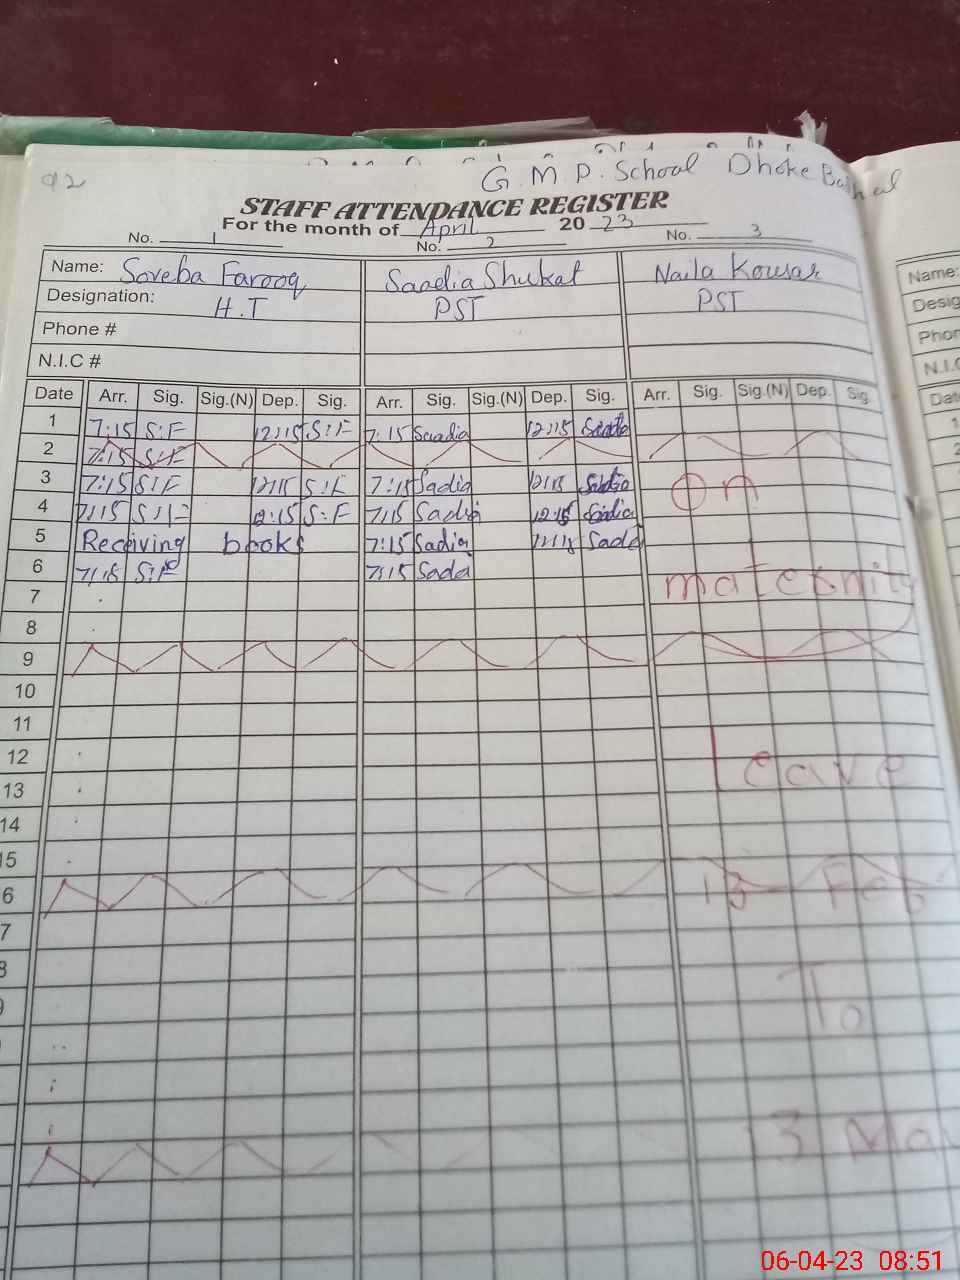 92
G.M.P. School Dhoke
STAFF ATTENDANCE REGISTER
For the month of April 2023
No. 1 No. 2 No. 3
Name: Soveba Farooq Saadia Shukat Naila Kousar Name:
Designation: H.T PST PST Desig
Phone # Phon
N.I.C # N.I.C
Date Arr. Sig. Sig.(N) Dep. Sig. Arr. Sig. Sig.(N) Dep. Sig. Arr. Sig. Sig.(N) Dep. Sig. Dat
1 7:15 S:F 12:15 S:F 7:15 Saadia 12:15 1
2 7:15 S:F 2
3 7:15 S:F 12:15 S:F 7:15 Sadia 12:15 Sadia On
4 7:15 S:F 12:15 S:F 7:15 Sadia 12:15 Sadia
5 Receiving books 7:15 Sadia 12:15 Sada
6 7:15 S:F 7:15 Sada maternity
7
8
9
10
11
12 Leave
13
14
15
6 13 Feb
7
8
9 To
3 Ma
06-04-23 08:51